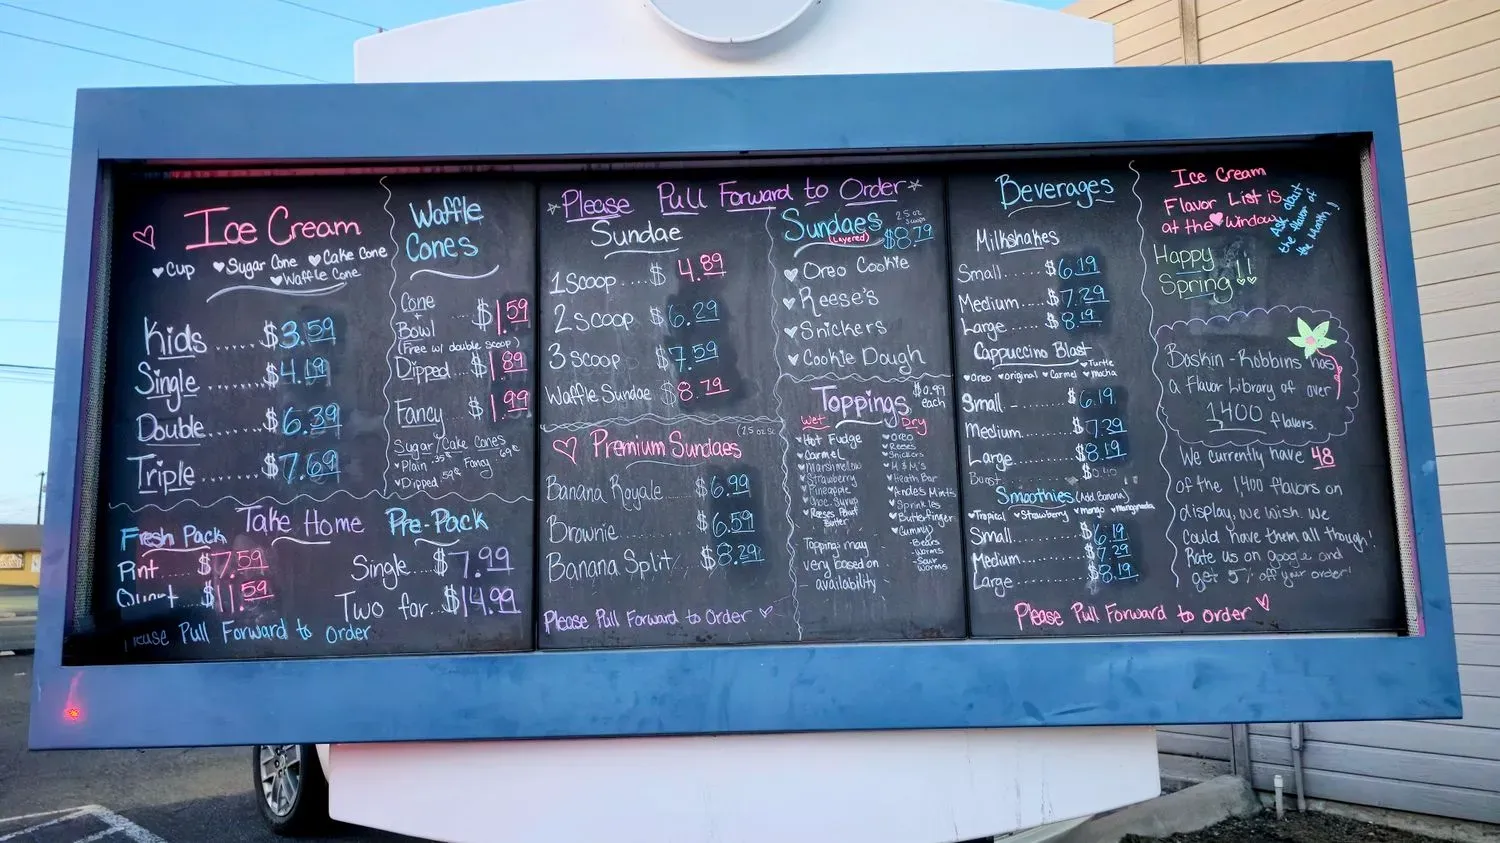 Ice Cream
Cup Sugar Cone Cake Cone
Waffle Cone
Kids...... $3.59
Single....... $4.19
Double..... $6.39
Triple..... $7.69
Waffle
Cones
Cone
+
Bowl .... $1.59
(Free w/ double scoop)
Dipped.... $1.89
Fancy... $1.99
Sugar/Cake Cones
Plain .35¢ Fancy .69¢
Dipped .59¢
Take Home
Fresh Pack
Pint ... $7.59
Quart .. $11.59
Pre-Pack
Single... $7.99
Two for... $14.99
Please Pull Forward to Order
Please Pull Forward to Order
Sundae
1 Scoop.... $4.89
2 scoop $6.29
3 scoop $7.59
Waffle Sundae $8.79
Premium Sundaes
Banana Royale..... $6.99
Brownie........ $6.59
Banana Split $8.29
Please Pull Forward to Order
Sundaes
(Layered)
2.5 oz
Scoops
$8.79
Oreo Cookie
Reese's
Snickers
Cookie Dough
Toppings
$0.99
each
Wet
Hot Fudge
Carmel
Marshmellow
Strawberry
Pineapple
Choc. Syrup
Reeses Peanut
Butter
Dry
Oreo
Reeses
Snickers
M & M's
Heath Bar
Andes Mints
Sprinkles
Butterfinger
Gummy
-Bears
-Worms
-Sour
Worms
Toppings may
very based on
availability
Beverages
Milkshakes
Small...... $6.19
Medium..... $7.29
Large...... $8.19
Cappuccino Blast
Oreo original Carmel Turtle
Mocha
Small .. - ..... $6.19
Medium....... $7.29
Large....... $8.19
Smoothies (Add Banana)
Tropical Strawberry mango Mangonada
Small........... $6.19
Medium....... $7.29
Large........... $8.19
Please Pull Forward to order
Ice Cream
Flavor List is
at the window
Ask about
the flavor of
the Month!
Happy
Spring!!
Baskin-Robbins has
a Flavor Library of over
1400
flavors.
We currently have 48
of the 1,400 flavors on
display, we wish we
could have them all though!
Rate us on google and
get 5% off your order!